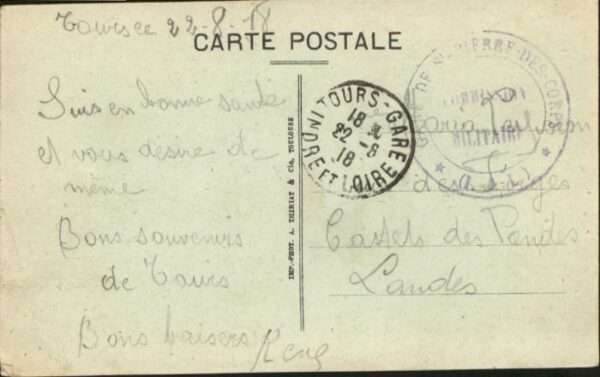 Tours le 22-8-18
CARTE POSTALE
Suis en bonne santé
et vous desire de
même
Bons souvenirs
de Tours
Bons baisers
René
IMP.-PHOT. A. THIRIAT & Cie, TOULOUSE
TOURS-GARE
18
22 -8
18
INDRE ET LOIRE
GARE DE ST-PIERRE-DES-CORPS
COMMISSION
MILITAIRE
Maria
des
Castets des Landes
Landes